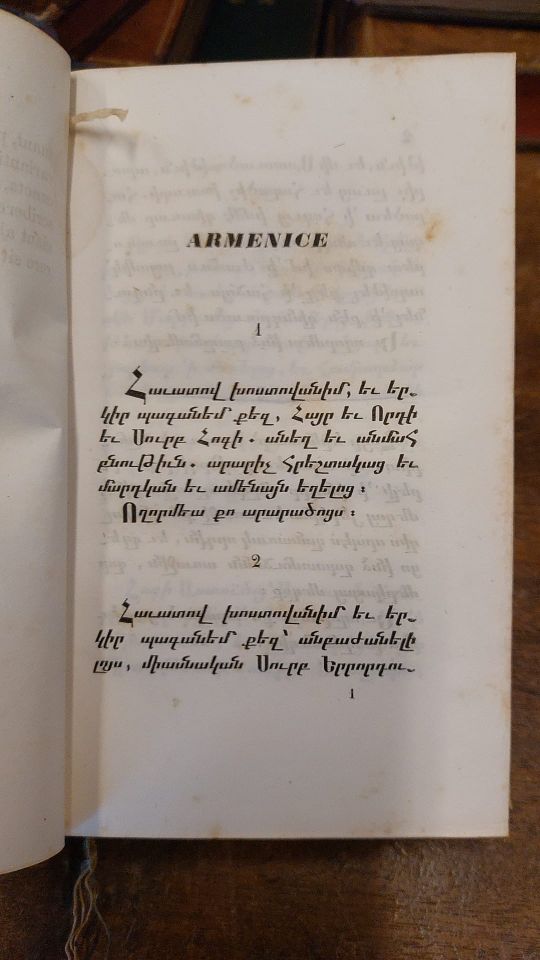 ARMENICE
1
Հաւատով խոստովանիմ, եւ եր֊
կիր պագանեմ քեզ, Հայր եւ Որդի
եւ Սուրբ Հոգի. անեղ եւ անմահ
բնութիւն. արարիչ հրեշտակաց եւ
մարդկան եւ ամենայն եղելոց։
Ողորմեա քո արարածոցս։
2
Հաւատով խոստովանիմ եւ եր֊
կիր պագանեմ քեզ՝ անբաժանելի
լոյս, միասնական Սուրբ Երրորդու֊
1